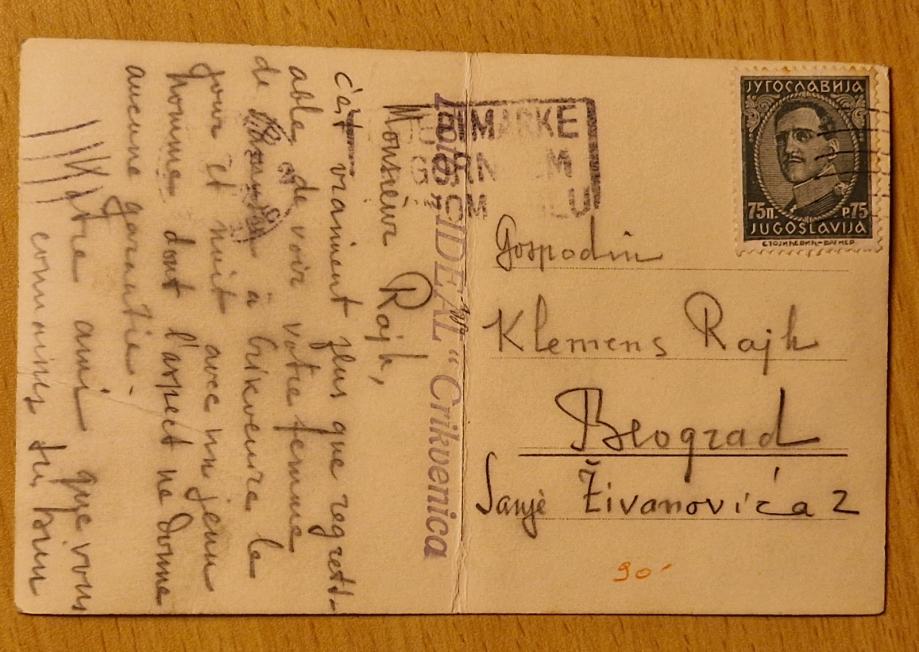 Monsieur Rajh,
c'est vraiment plus que regrett-
able de voir votre femme
de à Crikvenice le
jour et nuit avec un jeun
homme dont l'aspect ne donne
aucune garantie.-
Votre ami que vous
bien
„IDEAL“ Crikvenica
MARKE
ЈУГОСЛАВИЈА
75п. P.75
JUGOSLAVIJA
Gospodin
Klemens Rajh
Beograd
Sanje Živanovića 2
90.-